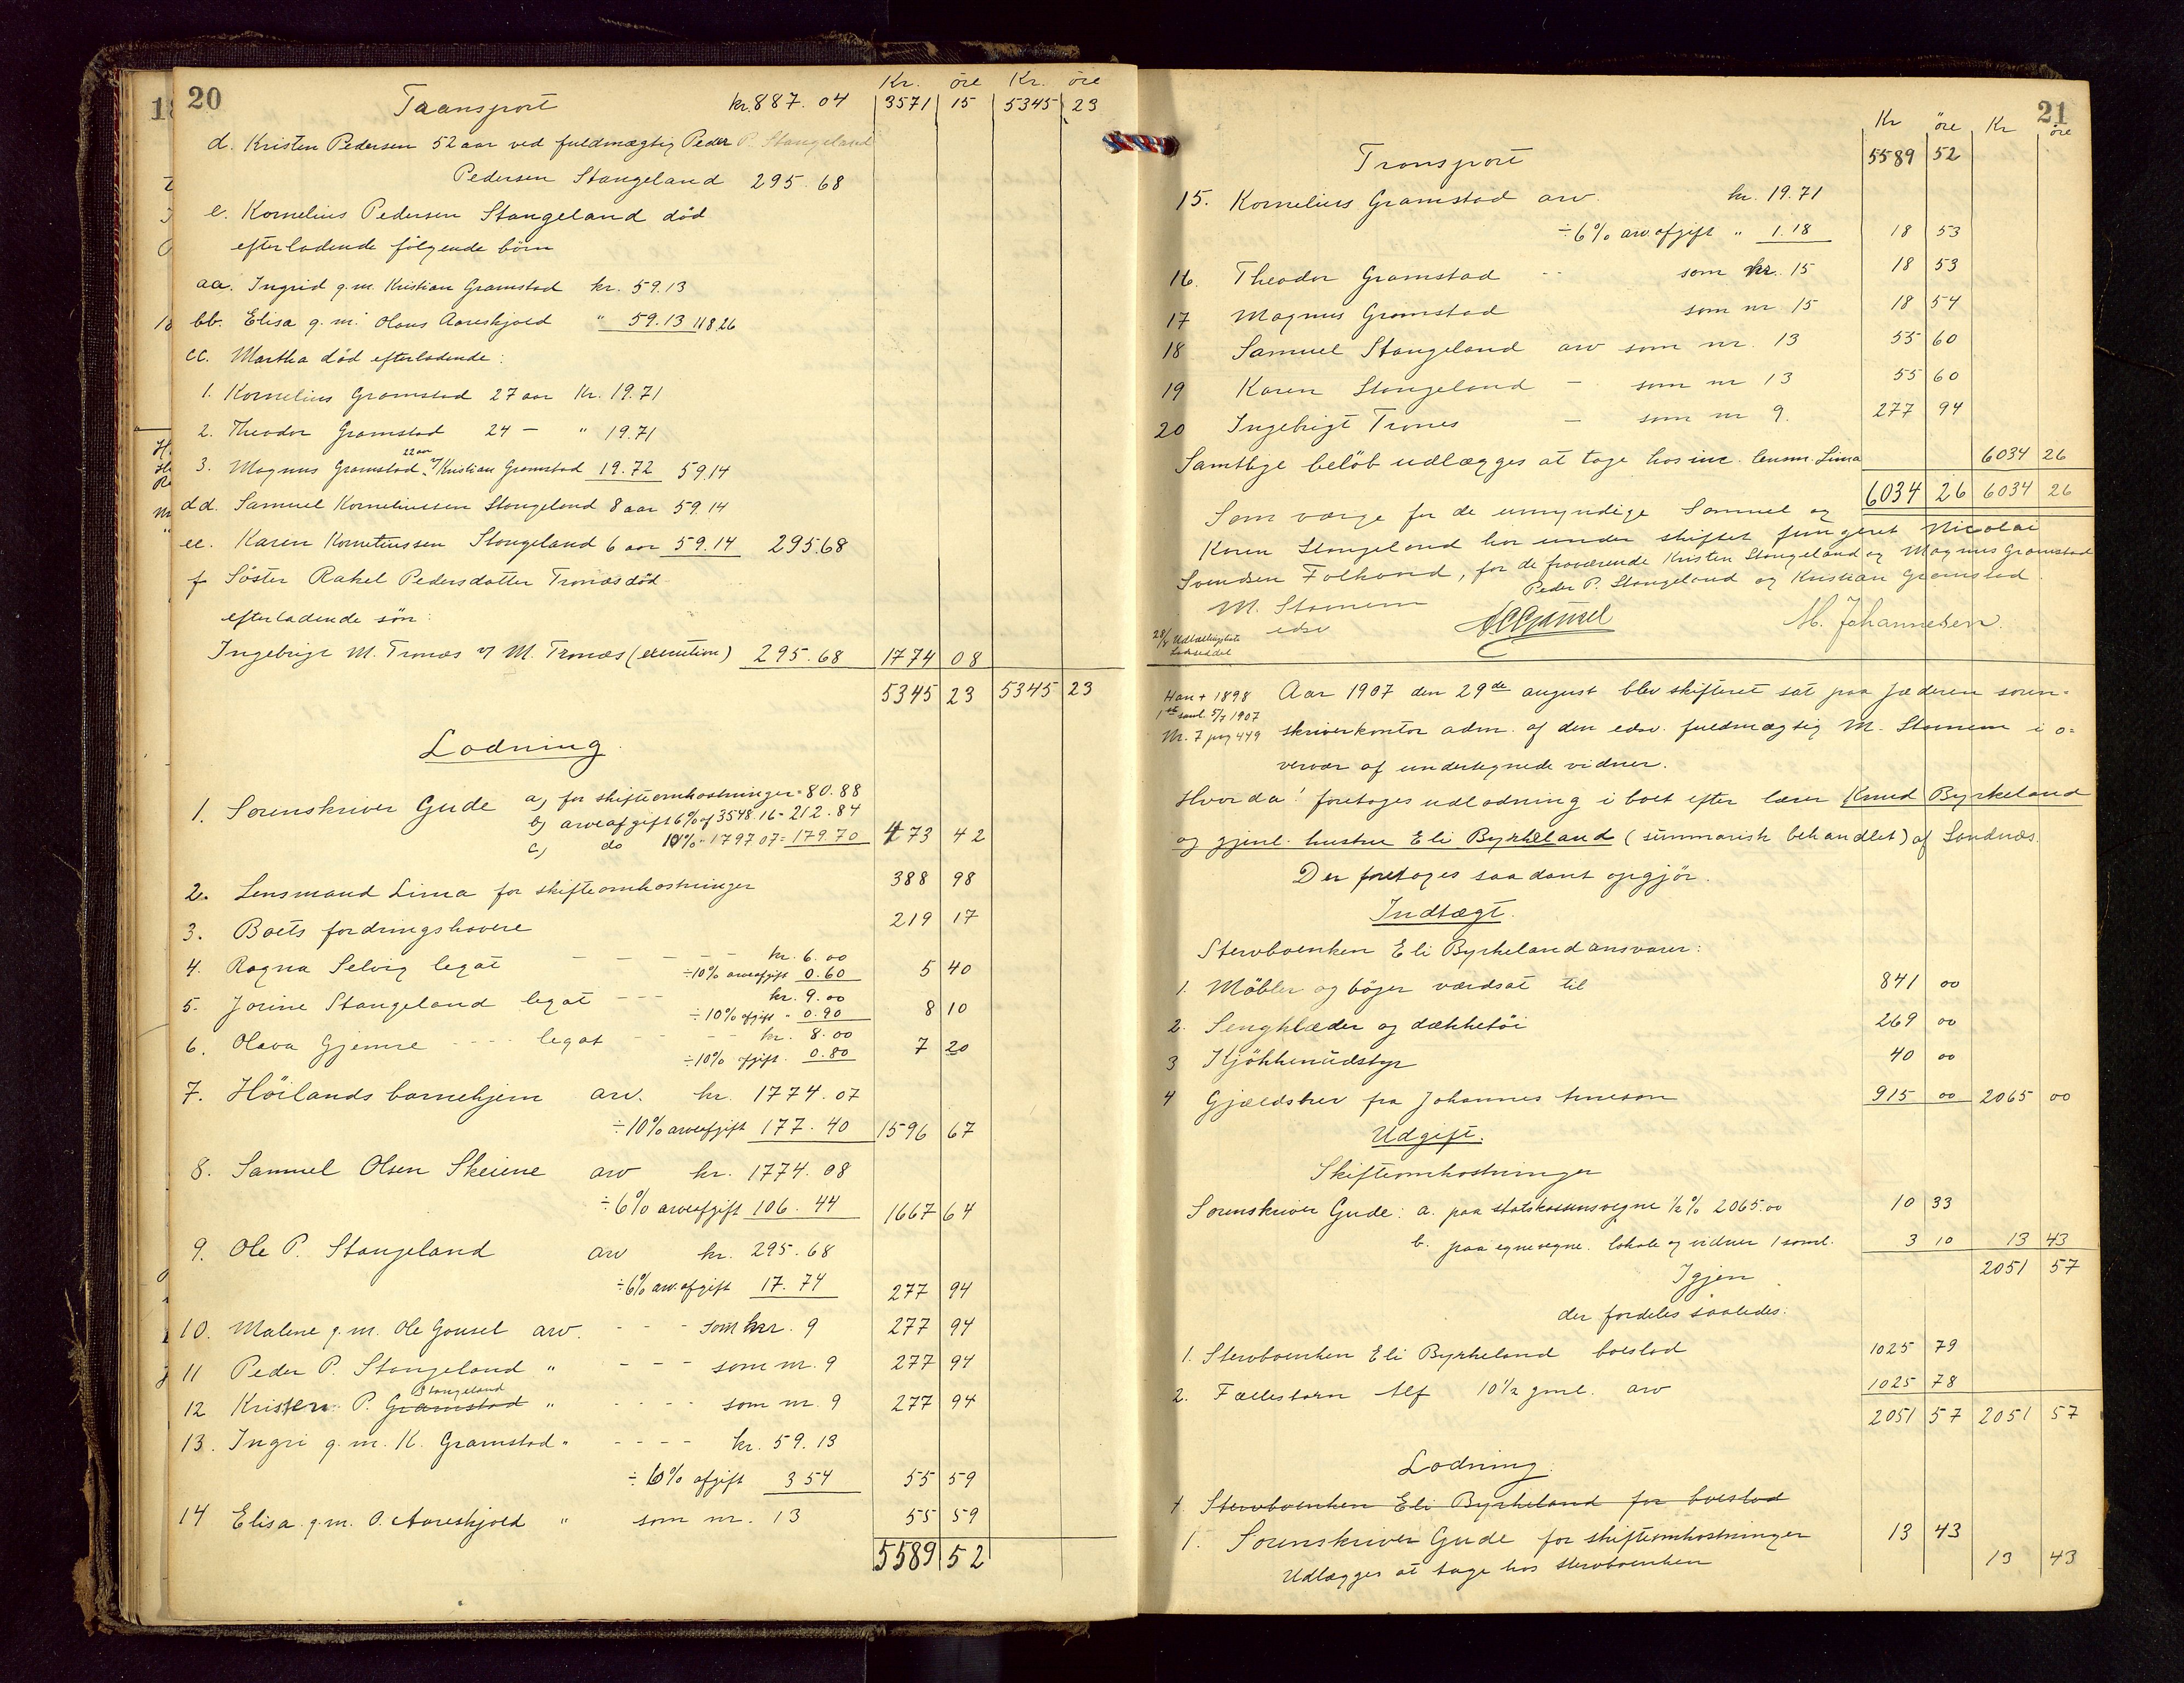 20
Kr. öre Kr. öre
Transport kr. 887. 04 3571 15 5345 23
d. Kristen Pedersen 52 aar ved fuldmægtig Peder P. Stangeland
Pedersen Stangeland 295. 68
e. Kornelius Pedersen Stangeland död
efterladende følgende börn
aa. Ingrid g. m. Kristian Gramstad kr. 59.13
bb. Elisa g. m. Olaus Aareskjold " 59.13 118 26
cc. Martha död efterladende:
1. Kornelius Gramstad 27 aar Kr. 19.71
2. Theodor Gramstad 24 — " 19.71
22 aar
3. Magnus Gramstad v/ Kristian Gramstad 19.72 59.14
dd. Samuel Korneliussen Stangeland 8 aar 59.14
ee. Karen Korneliussen Stangeland 6 aar 59.14 295.68
f Söster Rakel Pedersdatter Tronæs död
efterladende sön:
Ingebrigt M. Tronæs v/ M. Tronæs (execution) 295.68 1774 08
5345 23 5345 23
Lodning
1. Sorenskriver Gude a, for skifteomkostninger = 80.88
b, arveafgift 6% af 3548.16 = 212.84
c, do 10% - 1797 07 = 179 70 473 42
2. Lensmand Lima for skifteomkostninger 388 98
3. Boets fordringshavere 219 17
4. Ragna Selvig legat — — — — kr. 6. 00
÷10% arveafgift 0.60 5 40
5. Jorine Stangeland legat - - - kr. 9. 00
÷10% afgift " 0.90 8 10
6. Olava Gjemre - - - - legat - - - kr. 8.00
÷10% afgift. 0.80 7 20
7. Höilands barnehjem arv. kr. 1774.07
÷10% arveafgift 177. 40 1596 67
8. Samuel Olsen Skeiene arv kr. 1774. 08
÷6% arveafgift 106. 44 1667 64
9. Ole P. Stangeland arv kr. 295.68
÷6% arv. afgift 17. 74 277 94
10. Malene g. m. Ole Gausel arv. - - - som nr. 9 277 94
11 Peder P. Stangeland " - - - som nr. 9 277 94
Stangeland
12 Kristen P. Gramstad " - - - - som nr. 9 277 94
13. Ingri g. m. K. Gramstad " - - - - kr. 59. 13
÷ 6% afgift 3 54 55 59
14 Elisa g. m. O. Aareskjold " som nr. 13 55 59
5589 52
21
Kr öre Kr öre
Transport 5589 52
15. Kornelius Gramstad arv. kr. 19.71
÷6% arv. afgift " 1.18 18 53
16. Theodor Gramstad - - som nr. 15 18 53
17 Magnus Gramstad som nr 15 18 54
18 Samuel Stangeland arv som nr. 13 55 60
19 Karen Stangeland — som nr 13 55 60
20 Ingebrigt Trones — som nr 9. 277 94
Samtlige belöb udlægges at tage hos inc. lensm. Lima 6034 26
6034 26 6034 26
Som værge for de umyndige Samuel og
Karen Stangeland har under skiftet fungeret Nicolai
Svendsen Folkvord, for de fraværende Kristen Stangeland og Magnus Gramstad
Peder P. Stangeland og Kristian Gramstad.
M. Stamem
edsv M. Johannesen.
28/8 Udlodningsliste
Han + 1898 Aar 1907 den 29de august blev skifteret sat paa Jæderen soren=
1ste saml. 5/7 1907
Nr. 7 pag 449 skriverkontor adm. af den edsv. fuldmægtig M. Stamem i o=
vervær af undertegnede vidner.
Hvorda! foretages udlodning i boet efter lærer Knud Byrkeland
og gjenl. hustru Eli Byrkeland (summarisk behandlet) af Sandnæs.
Der foretages saadant opgjör.
Indtægt.
Stervboenken Eli Byrkeland ansvarer:
1. Möbler og böger værdsat til 841 00
2. Sengklæder og dækketöi 269 00
3 Kjökkenudstyr 40 00
4 Gjældsbrev fra Johannes Arneson 915 00 2065 00
Udgift.
Skifteomkostninger
Sorenskriver Gude: a. paa statskassens vegne ½% 2065.00 10 33
b. paa egne vegne. lokale og vidner 1 saml. 3 10 13 43
Igjen 2051 57
der fordeles saaledes:
1. Stervboenken Eli Byrkeland boeslod 1025 79
2. Fællesbarn Alf 10½ gml. arv 1025 78
2051 57 2051 57
Lodning.
1. Stervboenken Eli Byrkeland for boeslod
1. Sorenskriver Gude for skifteomkostninger 13 43
Udlægges at tage hos stervboenken 13 43